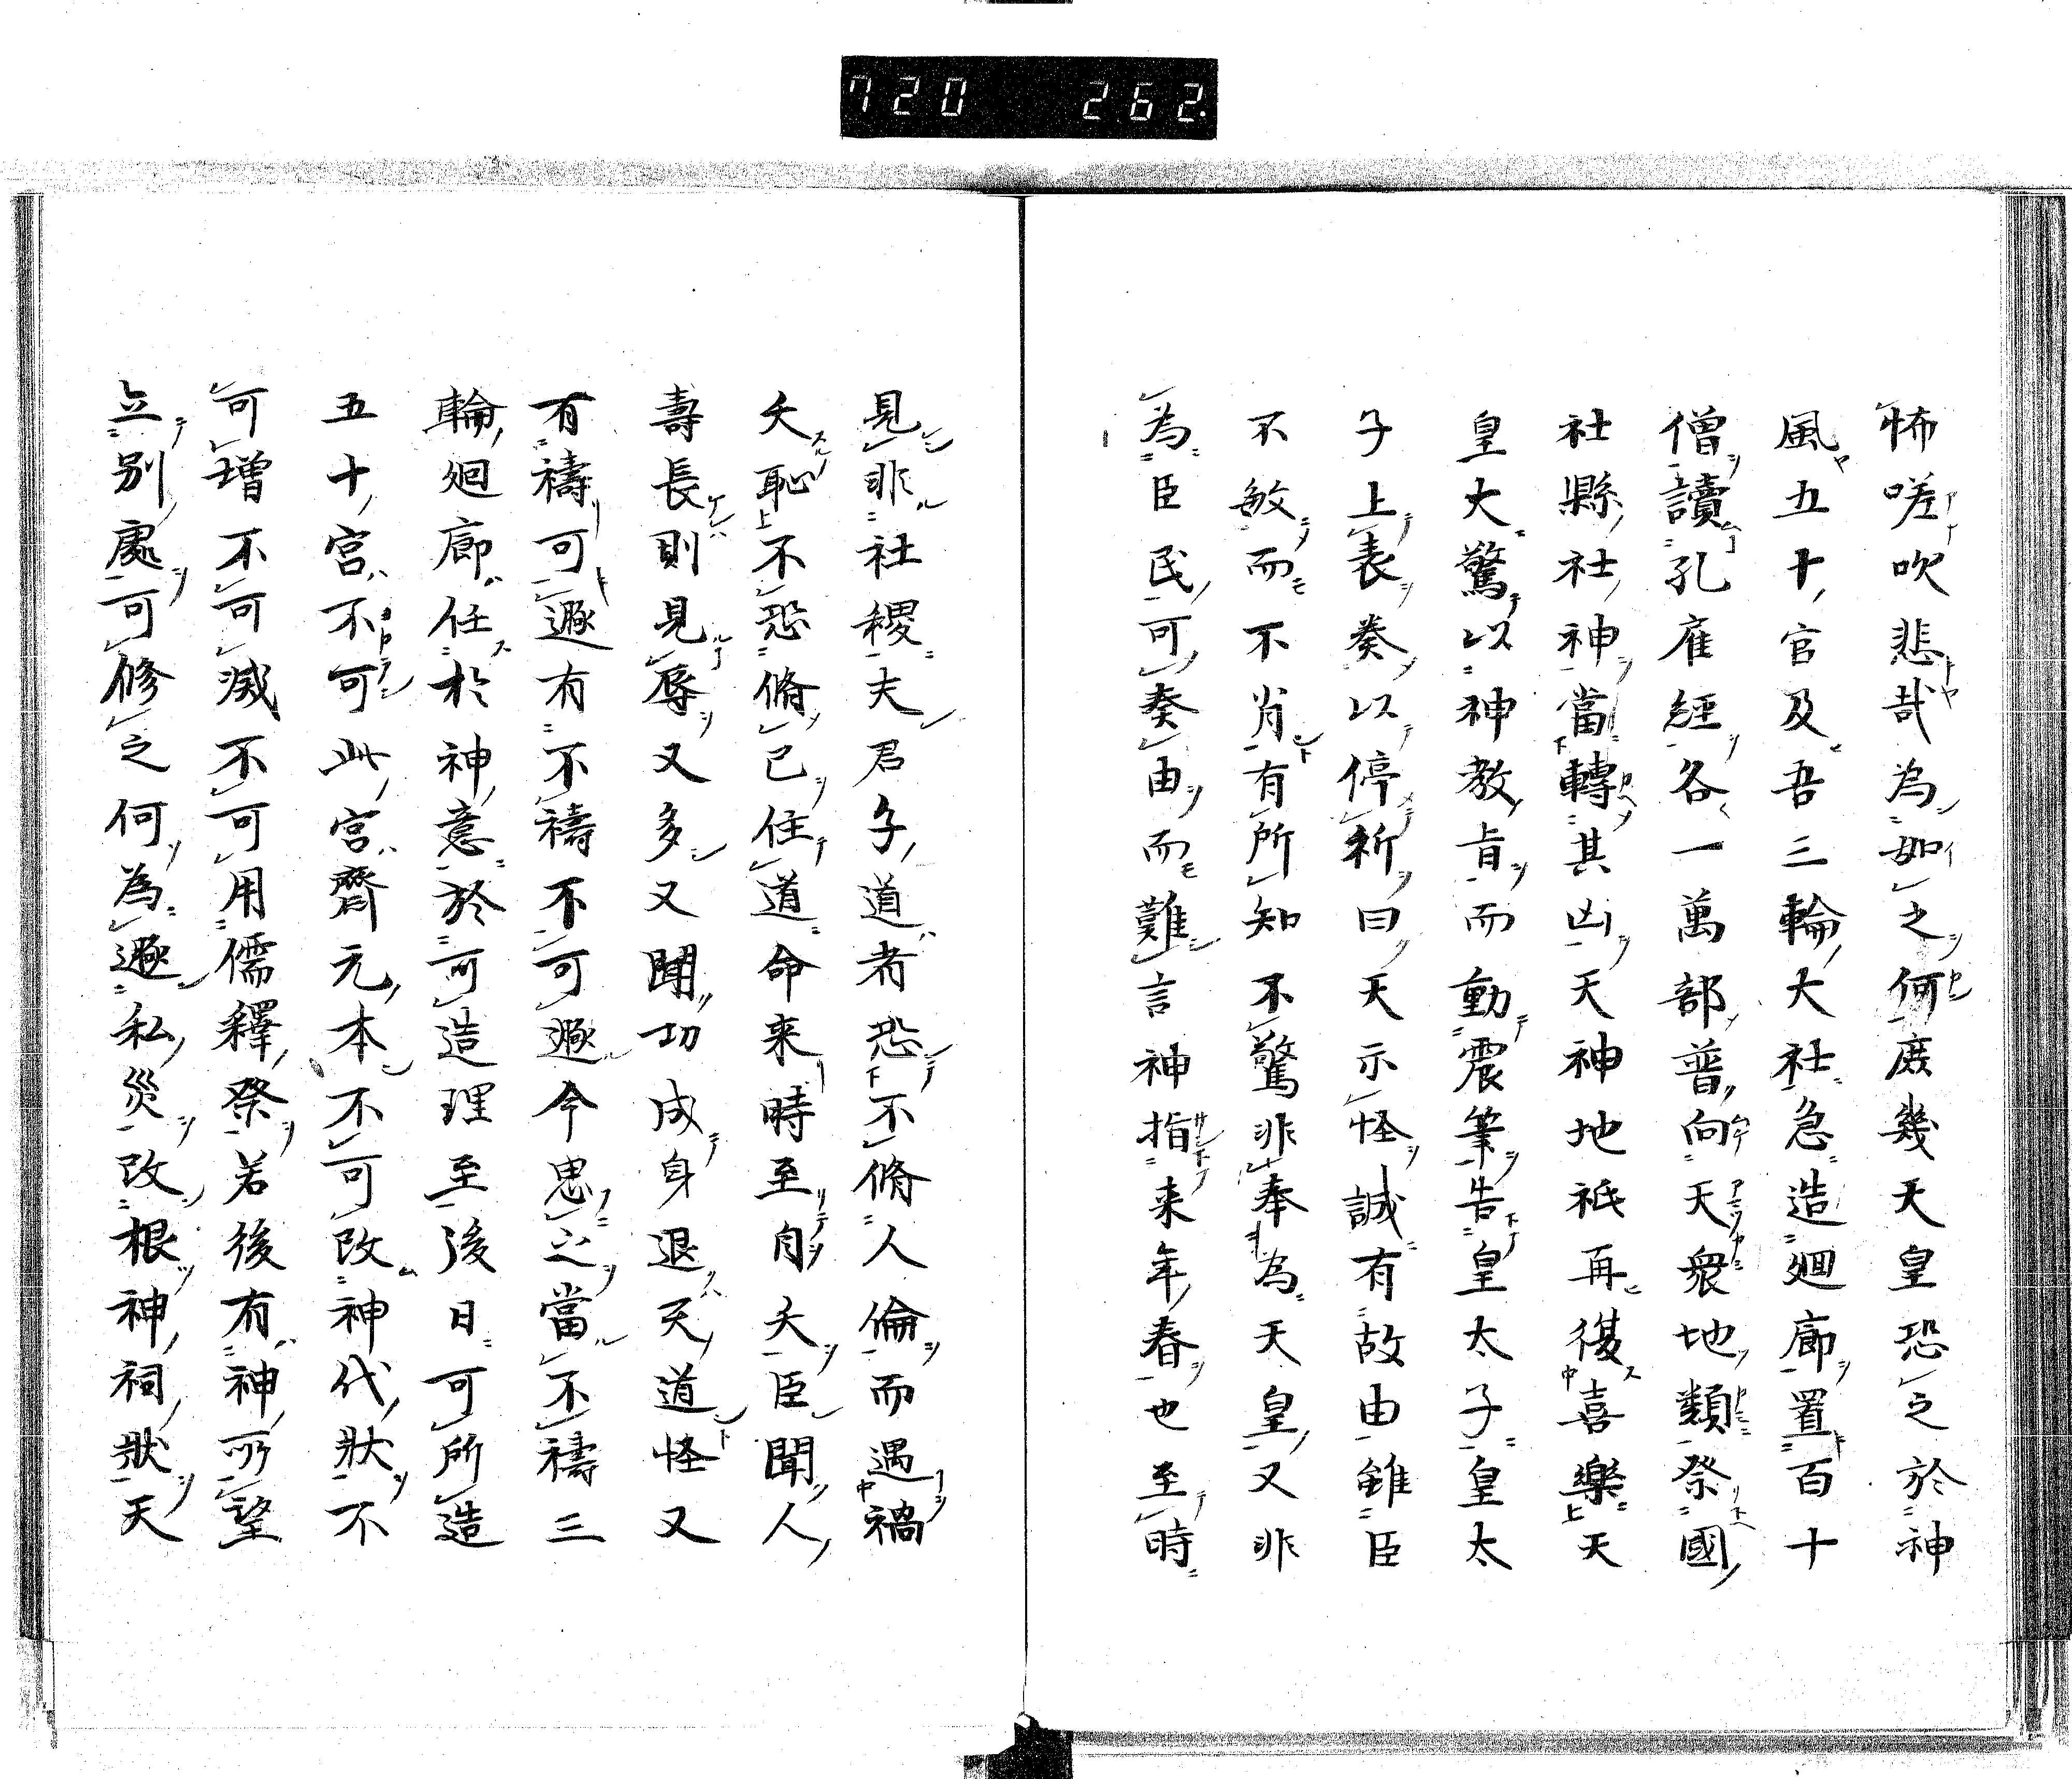 720 262
怖嗟吹悲哉為如之何庶幾天皇恐之於神
風五十官及吾三輪大社急造廻廊置百十
僧讀孔雀經各一萬部普向天衆地類祭國
社縣社神當轉其凶天神地祇再復喜樂天
皇大驚以神教旨而動震筆告皇太子皇太
子上表奏以停祈曰天示怪誠有故由雖臣
不敏而不肖有所知不驚非奉為天皇又非
為臣民可奏由而難言神指来年春也至時
見非社稷夫君子道者恐不脩人倫而遇禍
夭恥不恐脩己住道命来時至自夭臣聞人
壽長則見辱又多又聞功成身退天道怪又
有禱可遯有不禱不可遯今思之當不禱三
輪廻廊任於神意於可造理至後日可所造
五十宮不可此宮齊元本不可改神代狀不
可増不可減不可用儒釋祭若後有神所望
立別處可修之何為遯私災改根神祠狀天